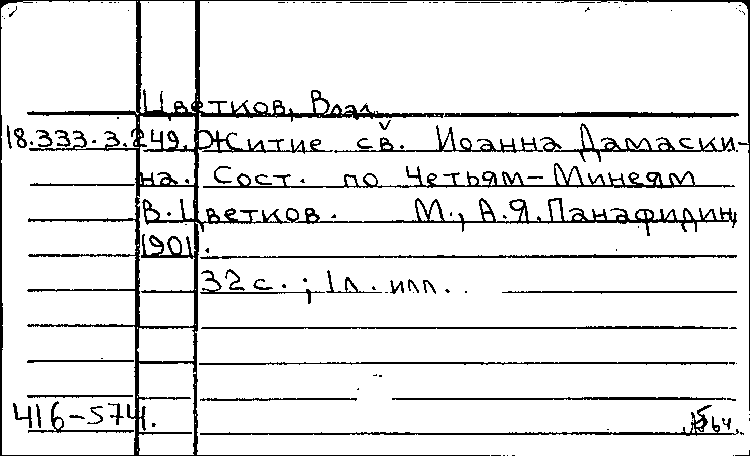 Цветков, Влад.
18.333.3.249. Житие св. Иоанна Дамаски-
на. Сост. по Четьям-Минеям
В. Цветков. М., А.Я. Панафидин,
1901.
32 с.; 1 л. илл.
416-574.